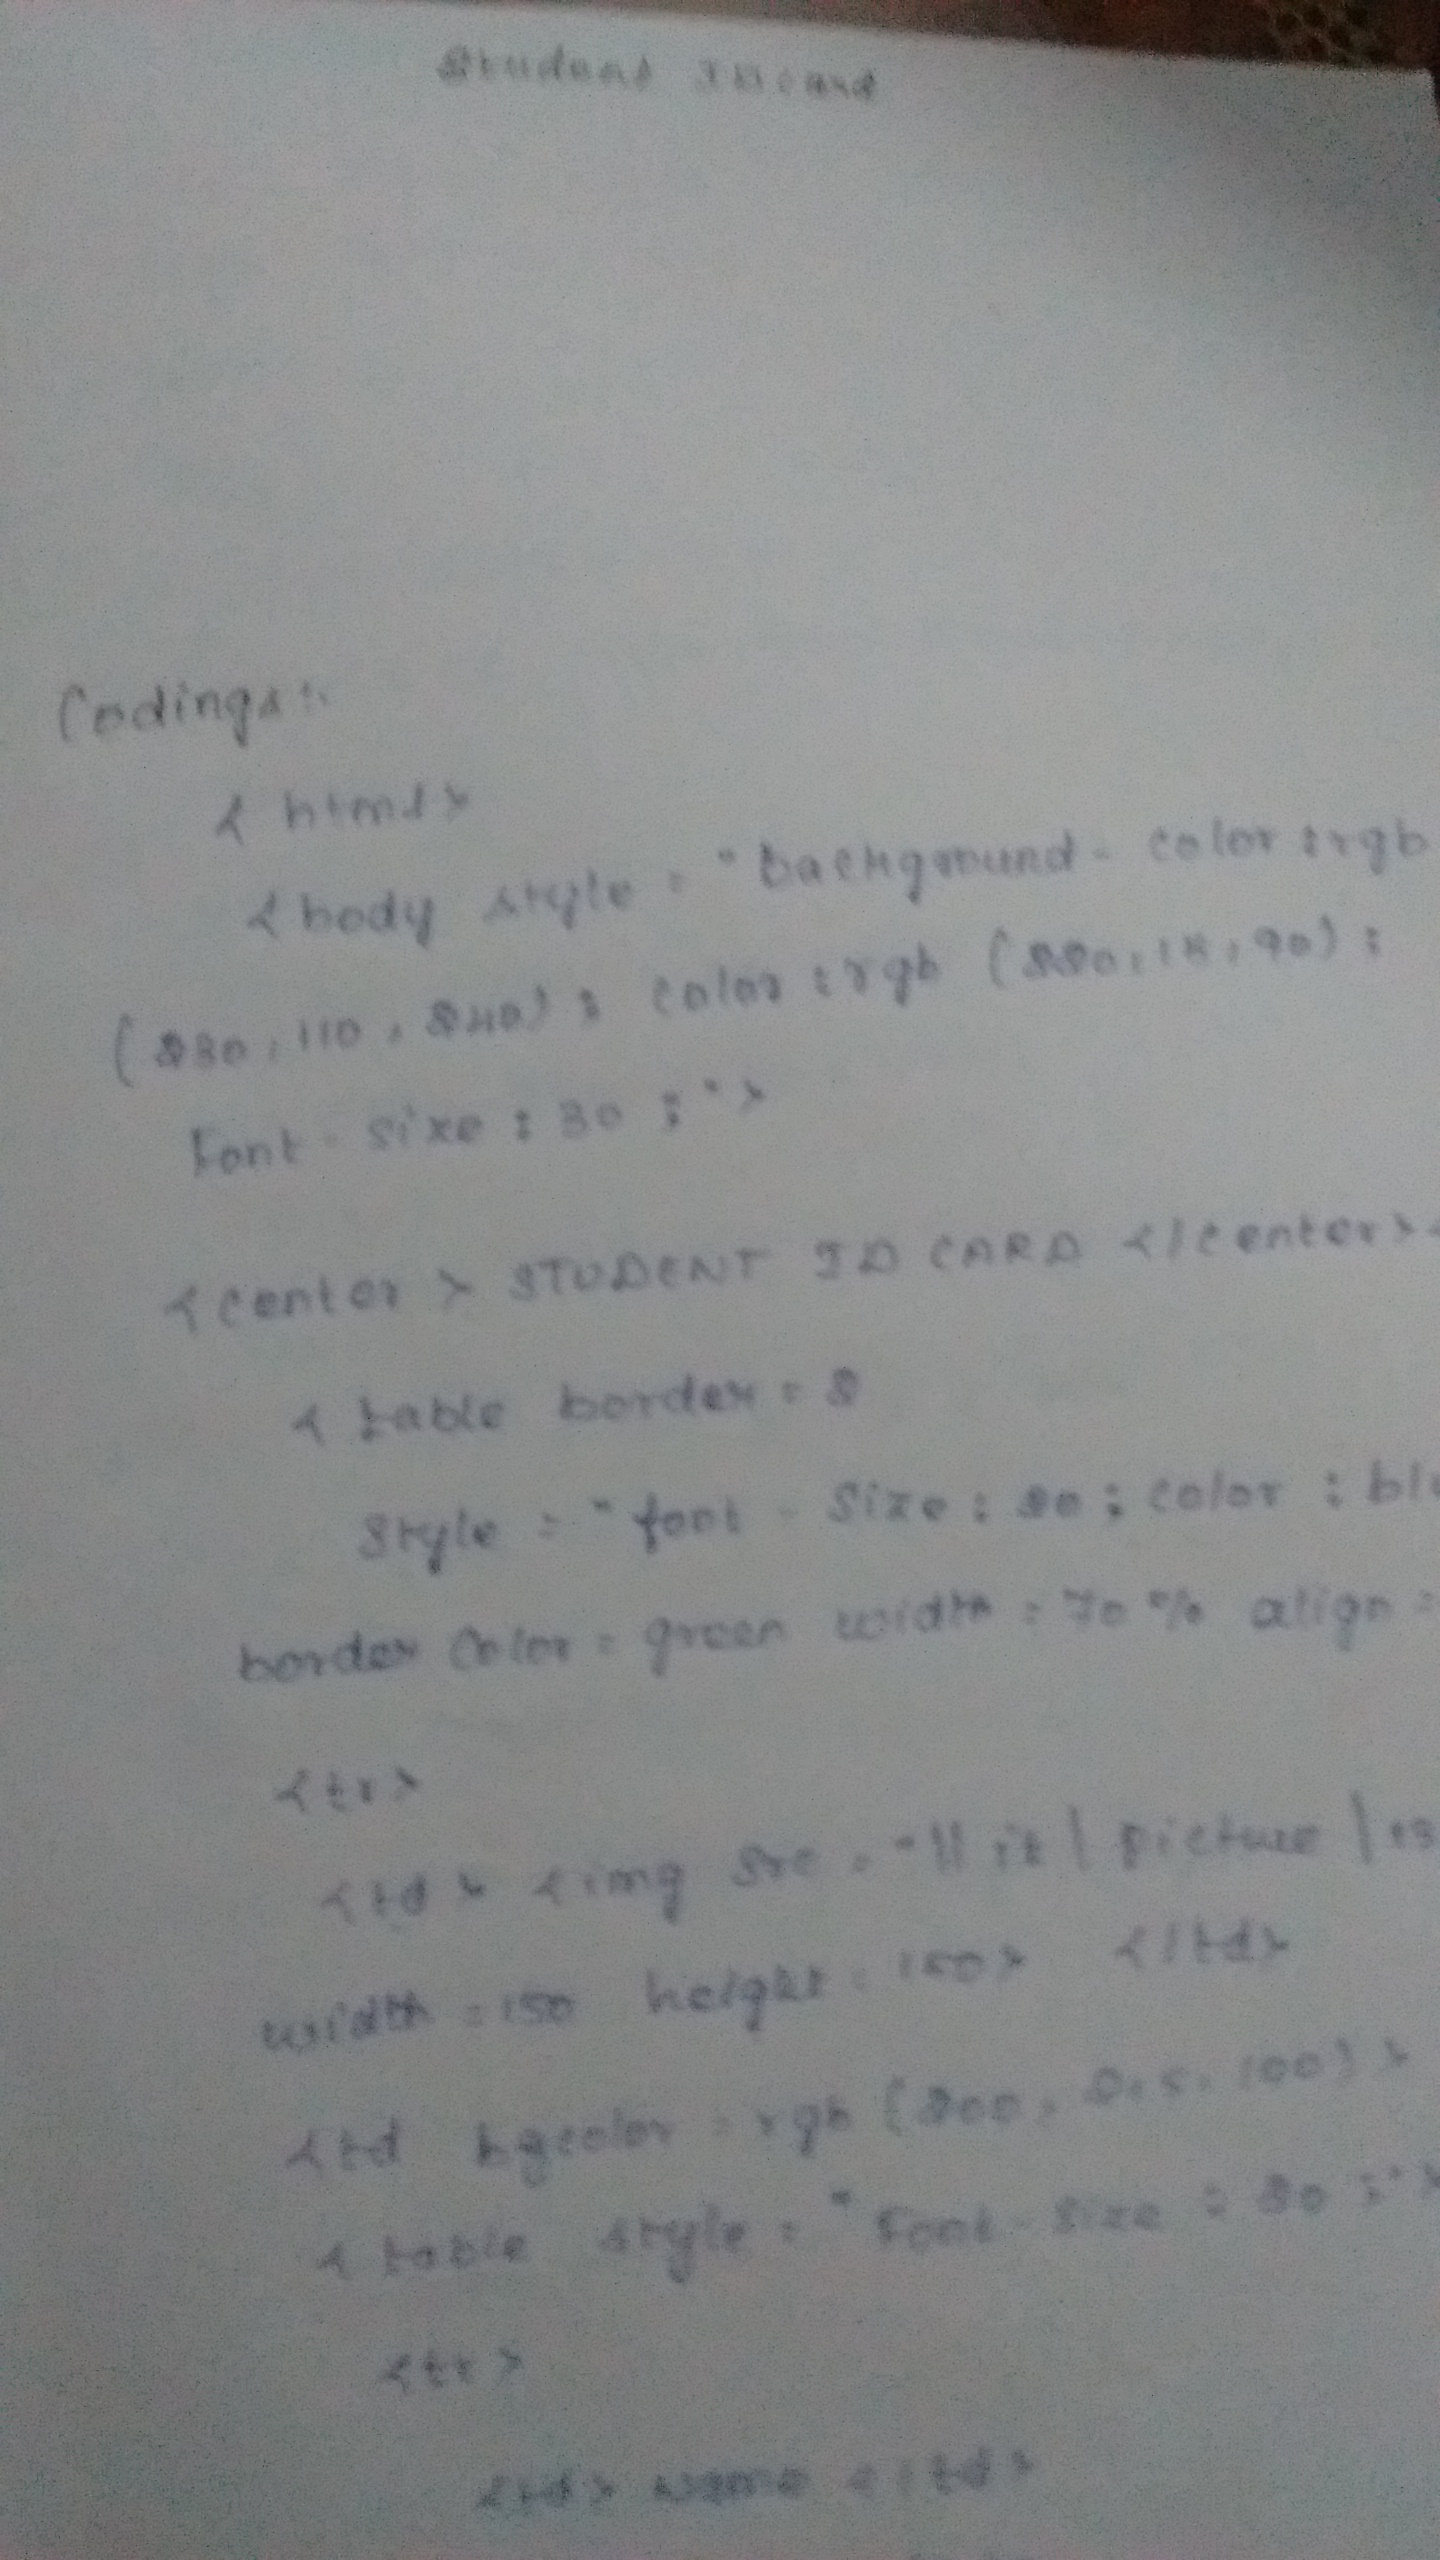 Student ID card
Codings:
< html>
<body style = "background - color : rgb
(230, 110, 240) ; color : rgb (220, 18, 90) ;
Font - size : 30 ; ">
<center > STUDENT ID CARD </center>
< table border = 2
Style = "font - Size : 20 ; color :
border color = green width = 70 % align =
<tr>
<td > <img src = "\\ it \ picture \
width = 150 height = 150> </td>
<td bgcolor = rgb (200, 100) >
< table style = "Font - size : 30 ; ">
<tr>
<td> Name </td>